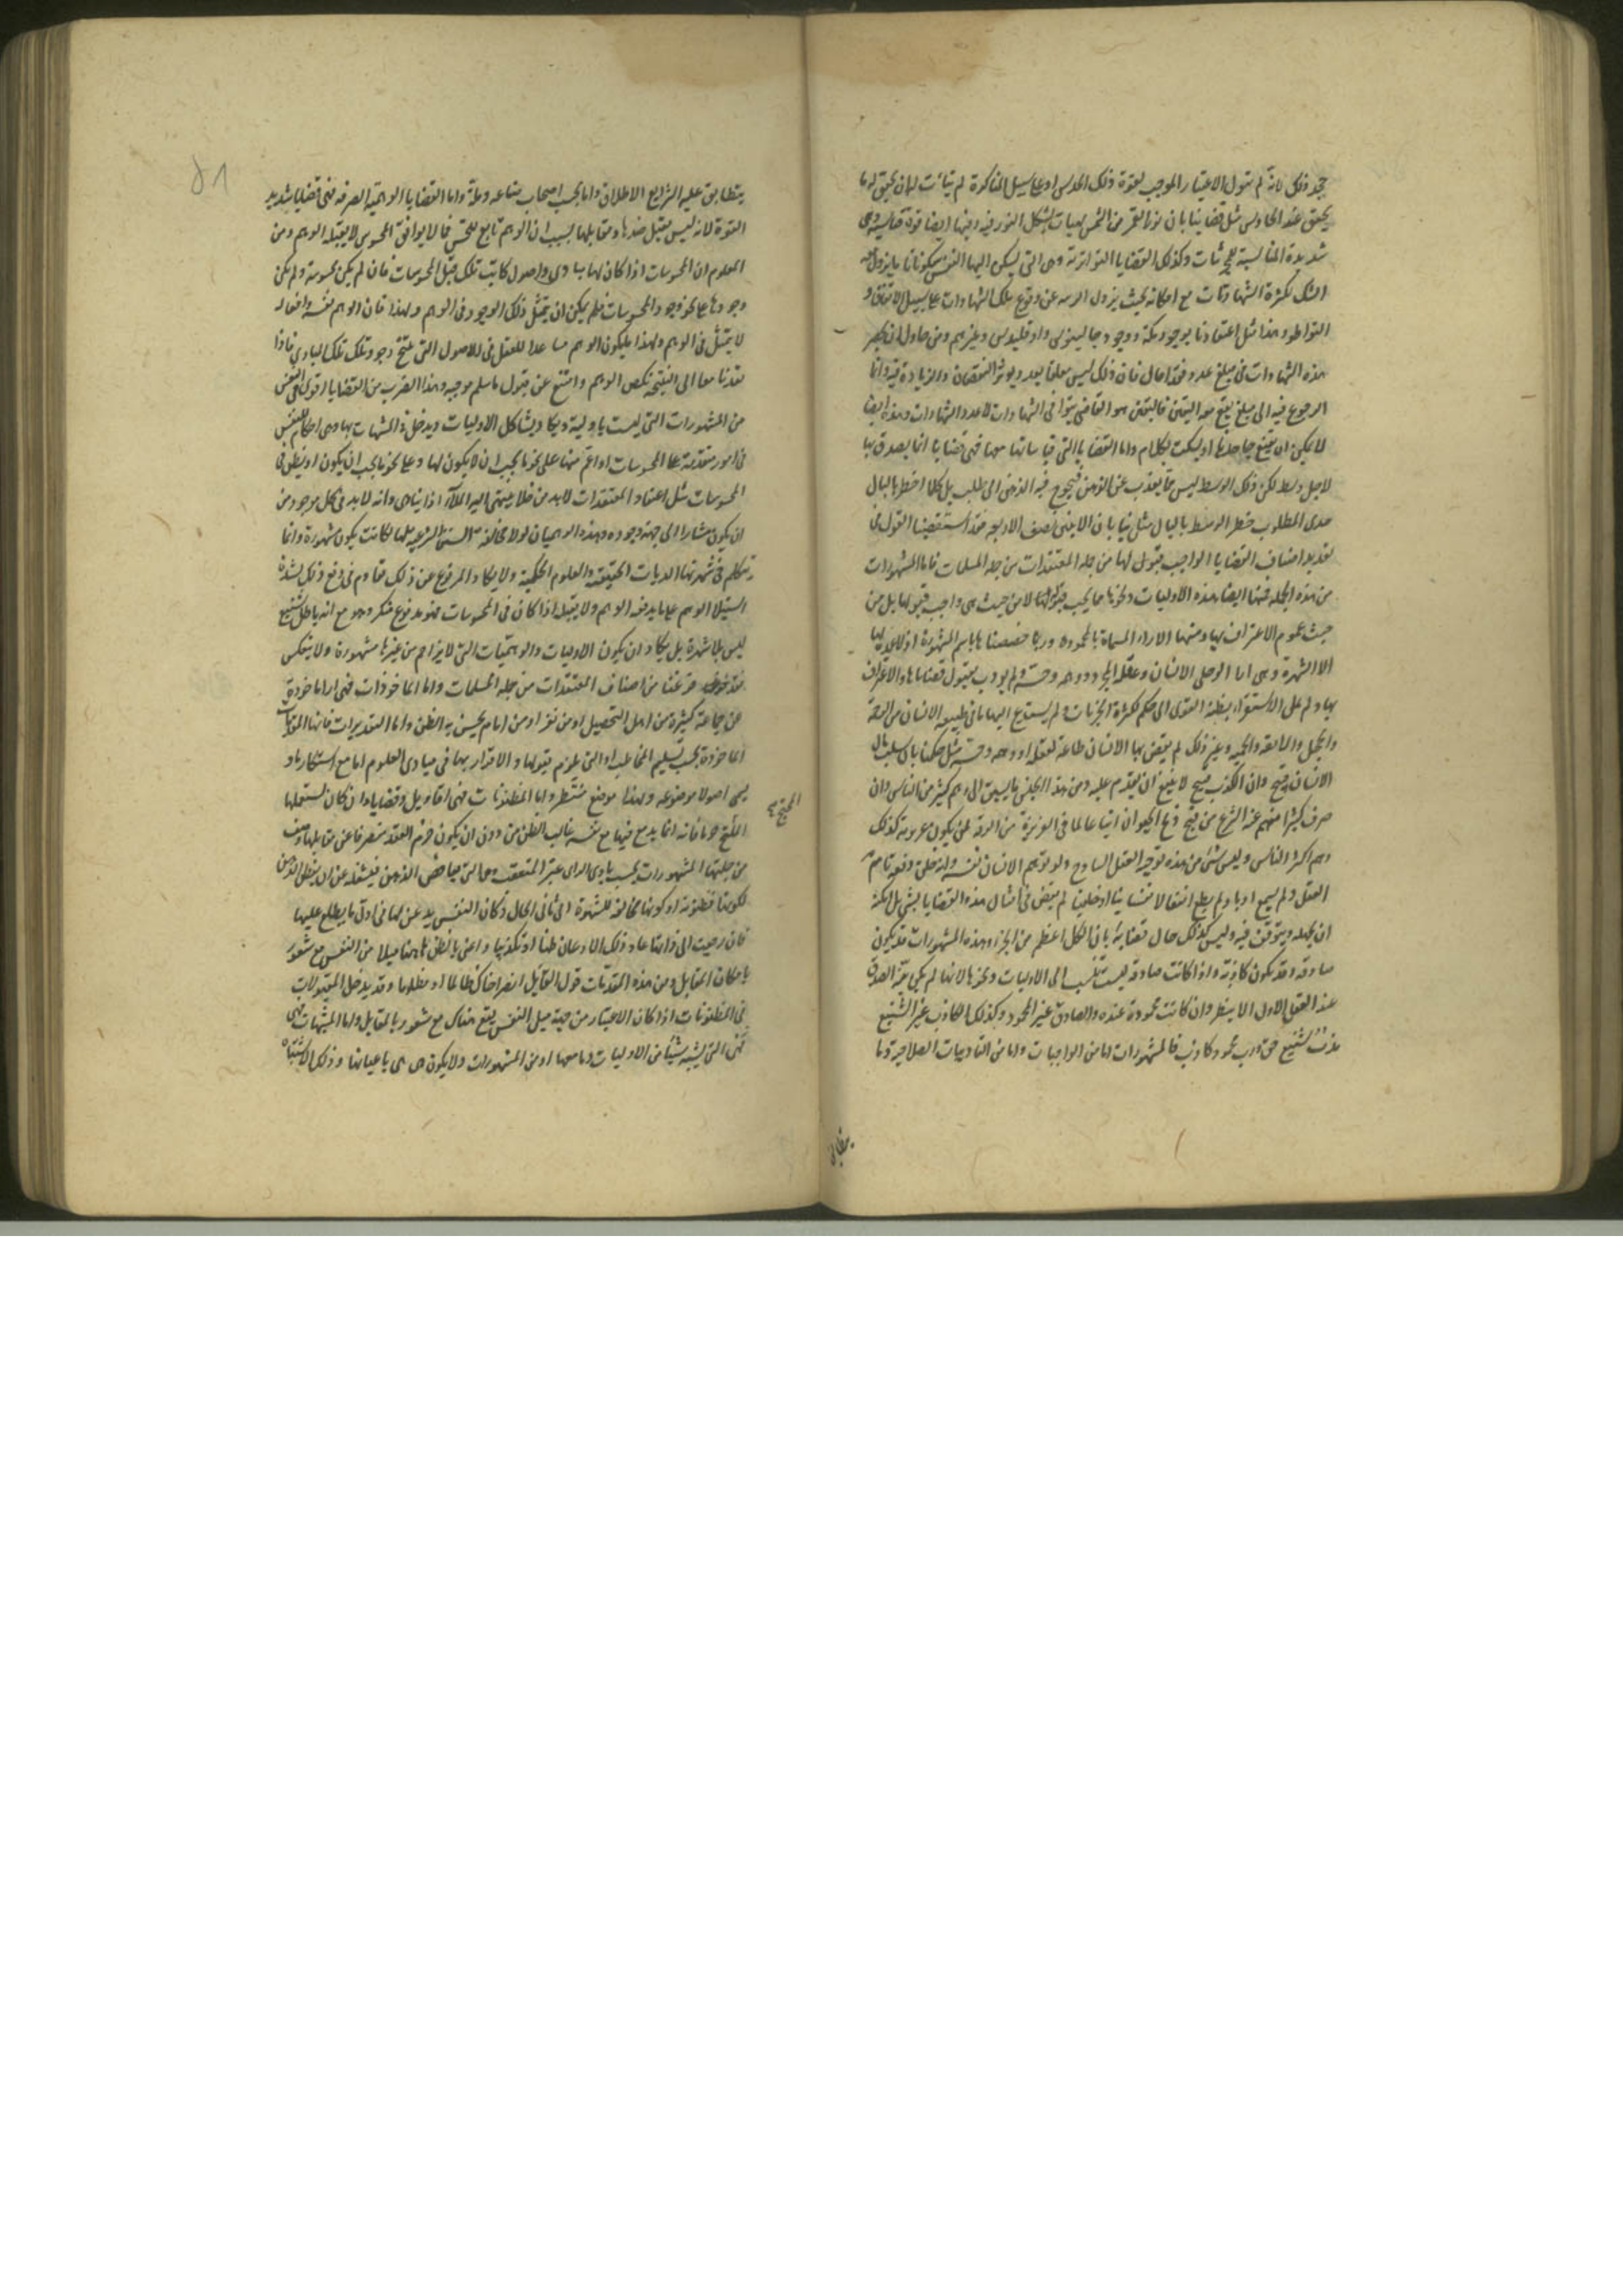 جحد ذلك لانه لم يتول الاعتبار الموجب لقوة ذلك الحدس او على سبيل المناكرة لم يتأت لان يحقق له ما
يحقق عند الحادس مثل قضايانا بان نور القمر من الشمس لهيات تشكل النور فيه وفيها ايضا قوة قياسية وهى
شديدة المناسبة للمجربات وكذلك القضايا التواترية وهى التى تسكن اليها النفس سكونا تاما يزول معه
الشك لكثرة الشهادات مع امكانه بحيث يزول الريبة عن وقوع تلك الشهادات على سبيل الاتفاق و
التواطو وهذا مثل اعتقادنا بوجود مكة ووجود جالينوس واوقليدس وغيرهم ومن حاول ان يحصر
هذه الشهادات فى مبلغ عدد فقد احال فان ذلك ليس معلقا بعدد يوثر النقصان والزيادة فيه وانما
الرجوع فيه الى مبلغ يقع معه اليقين فاليقين هو القاضى بتوافى الشهادات لا عدد الشهادات وهذه ايضا
لا يمكن ان يقنع جاحدها او يسكت بكلام واما القضايا التى قياساتها معها فهى قضايا انما يصدق بها
لاجل وسط لكن ذلك الوسط ليس مما يعزب عن الذهن فيحوج فيه الذهن الى طلب بل كلما اخطر بالبال
حدى المطلوب خطر الوسط بالبال مثل قضايانا بان الاثنين نصف الاربعة فقد استقصينا القول فى
تعديد اصناف القضايا الواجب قبول لها من جملة المعتقدات من جملة المسلمات فاما المشهورات
من هذه الجملة فمنها ايضا هذه الاوليات ونحوها مما يجب قبولها لا من حيث هى واجب قبولها بل من
حيث عموم الاعتراف بها ومنها الاراء المسماة بالمحمودة وربما خصصناها باسم المشهورة اذ لا عمدة لها
الا الشهرة وهى اراء لو خلى الانسان وعقله المجرد ووهمه وحسه ولم يودب بقبول قضاياها والاعتراف
بها ولم يمل الاستقراء بظنه القوى الى حكم لكثرة الجزئيات ولم يستدع اليها ما فى طبيعة الانسان من الرحمة
والخجل والانفة والحمية وغير ذلك لم يقض بها الانسان طاعة لعقله او وهمه وحسه مثل حكمنا بان سلب مال
الانسان قبيح وان الكذب قبيح لا ينبغى ان يقدم عليه ومن هذا الجنس ما يسبق الى وهم كثير من الناس وان
صرف كثيرا منهم عنه الشرع من قبح ذبح الحيوان اتباعا لما فى الغريزة من الرقة لمن يكون غريزته كذلك
وهم اكثر الناس وليس شئ من هذه يوجبه العقل الساذج ولو توهم الانسان نفسه وانه خلق دفعة تام
العقل ولم يسمع ادبا ولم يطع انفعالا نفسانيا او خلقيا لم يقض فى امثال هذه القضايا بشئ بل امكنه
ان يجهله ويتوقف فيه وليس كذلك حال قضائه بان الكل اعظم من الجزء وهذه المشهورات قد يكون
صادقة وقد يكون كاذبة واذا كانت صادقة ليست تنسب الى الاوليات ونحوها لانها لم يكن بينة الصدق
عند العقل الاول الا بنظر وان كانت محمودة عنده والصادق غير المحمود وكذلك الكاذب غير الشنيع
فرب شنيع حق ورب محمود كاذب فالمشهورات اما من الواجبات واما من التاديبات الصلاحية وما
يتطابق
يتطابق عليه الشرايع الالهية واما خلقيات
يتطابق عليه الشرايع الاطلاق واما بحسب اصحاب صناعة وملة واما القضايا الوهمية الصرفة فهى قضايا شديدة
القوة لانه ليس يقبل ضدها ومقابلها بسبب ان الوهم تابع للحس فما لا يوافق المحسوس لا يقبله الوهم ومن
المعلوم ان المحسوسات اذا كان لها مبادى واصول كانت تلك قبل المحسوسات فان لم يكن محسوسة ولم يكن
وجودها على نحو وجود المحسوسات فلم يكن ان يتمثل ذلك الوجود فى الوهم ولهذا فان الوهم نفسه وافعاله
لا يتمثل فى الوهم ولهذا ما يكون الوهم مساعدا للعقل فى الاصول التى ينتج وجود تلك المبادى فاذا
تعديا معا الى النتيجة نكص الوهم وامتنع عن قبول ما سلم موجبه وهذا الضرب من القضايا اقوى فى النفس
من المشهورات التى ليست باولية ويكاد يشاكل الاوليات ويدخل فى المشبهات بها وهى احكام للنفس
فى امور متقدمة على المحسوسات او اعم منها على نحو ما يجب ان لا يكون لها وعلى نحو ما يجب ان يكون او يظن فى
المحسوسات مثل اعتقاد المعتقدات لا بد من خلاء ينتهى اليه الملاء اذا تناهى وانه لا بد فى كل موجود من
ان يكون مشارا الى جهة وجوده وهذه الوهميات لولا مخالفة السنن الشرعية لها لكانت يكون مشهورة وانما
يثلم فى شهرتها الديانات الحقيقية والعلوم الحكمية ولا يكاد المدفوع عن ذلك مقاوم فى دفع ذلك لشدة
استيلاء الوهم على ما يدفعه الوهم ولا يقبله اذا كان فى المحسوسات فهو مدفوع منكر وهو مع انه باطل شنيع
ليس بلا شهرة بل يكاد ان يكون الاوليات والوهميات التى لا يزاحم من غيرها مشهورة ولا ينعكس
فقد فرغنا من اصناف المعتقدات من جملة المسلمات واما الماخوذات فهى اراء ماخوذة
عن جماعة كثيرة من اهل التحصيل او من نفر او من امام يحسن به الظن واما التقديرات فانها المقدمات
الماخوذة بحسب تسليم المخاطب او التى يلزم قبولها والاقرار بها فى مبادى العلوم اما مع استنكار ما و
يسمى اصولا موضوعة ولهذا موضع منتظر واما المظنونات فهى اقاويل وقضايا وان كان يستعملها
المحتج به
المحتج جزما فانه انما يتبع فيها مع نفسه غالب الظن من دون ان يكون جزم العقد منصرفا عن مقابلها وصنف
من جملتها المشهورات بحسب بادى الراى غير المتعقب وهى التى يغافص الذهن فيشغله عن ان يفطن الذهن
لكونها مظنونة او كونها مخالفة للشهرة الى ثانى الحال وكان النفس يذعن لها فى اول ما يطلع عليها
فان رجعت الى ذاتها عاد ذلك الاذعان ظنا او تكذيبا واعنى بالظن ههنا ميلا من النفس مع شعور
بامكان المقابل ومن هذه المقدمات قول القايل انصر اخاك ظالما او مظلوما وقد يدخل المقبولات
فى المظنونات اذا كان الاعتبار من جهة ميل النفس يقع هناك مع شعور بالمقابل واما المشبهات فهى
فهى التى يشبه شيئا من الاوليات وما معها او من المشهورات ولا يكون هى هى باعيانها وذلك الاشتباه